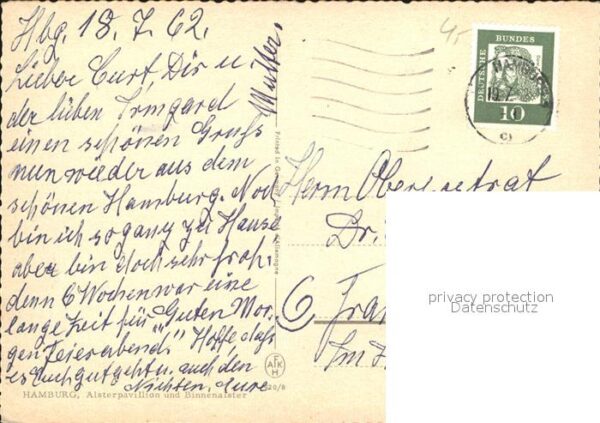 Hbg. 18. 7. 62.
Lieber Curt, Dir u.
der lieben Irmgard
einen schönen Gruß
nun wieder aus dem
schönen Hamburg. Noch
bin ich so ganz zu Hause
aber bin doch sehr froh,
denn 6 Wochen war eine
lange Zeit für "Guten Mor-
gen Feierabend". Hoffe daß
es Euch gut geht u. auch den
Nichten. Eure
Mutter.
HAMBURG, Alsterpavillion und Binnenalster
Printed in
FAKH
20/8
DEUTSCHE BUNDES
10
HAMBURG
Herrn
Dr.
6 Fran
Im
privacy protection
Datenschutz